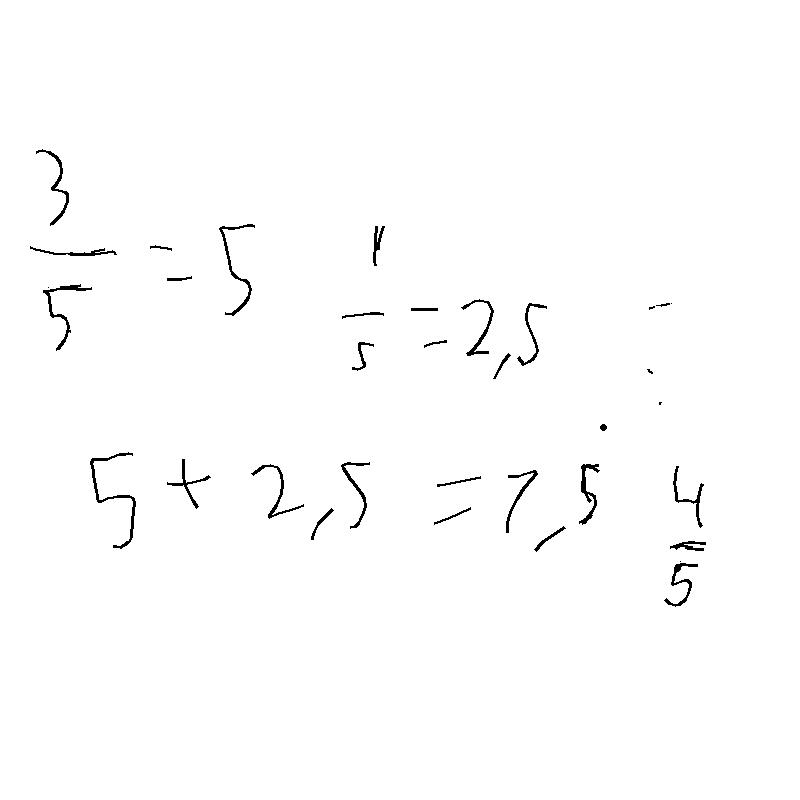 3/5 = 5
1/5 = 2,5
5 + 2,5 = 7,5 4/5